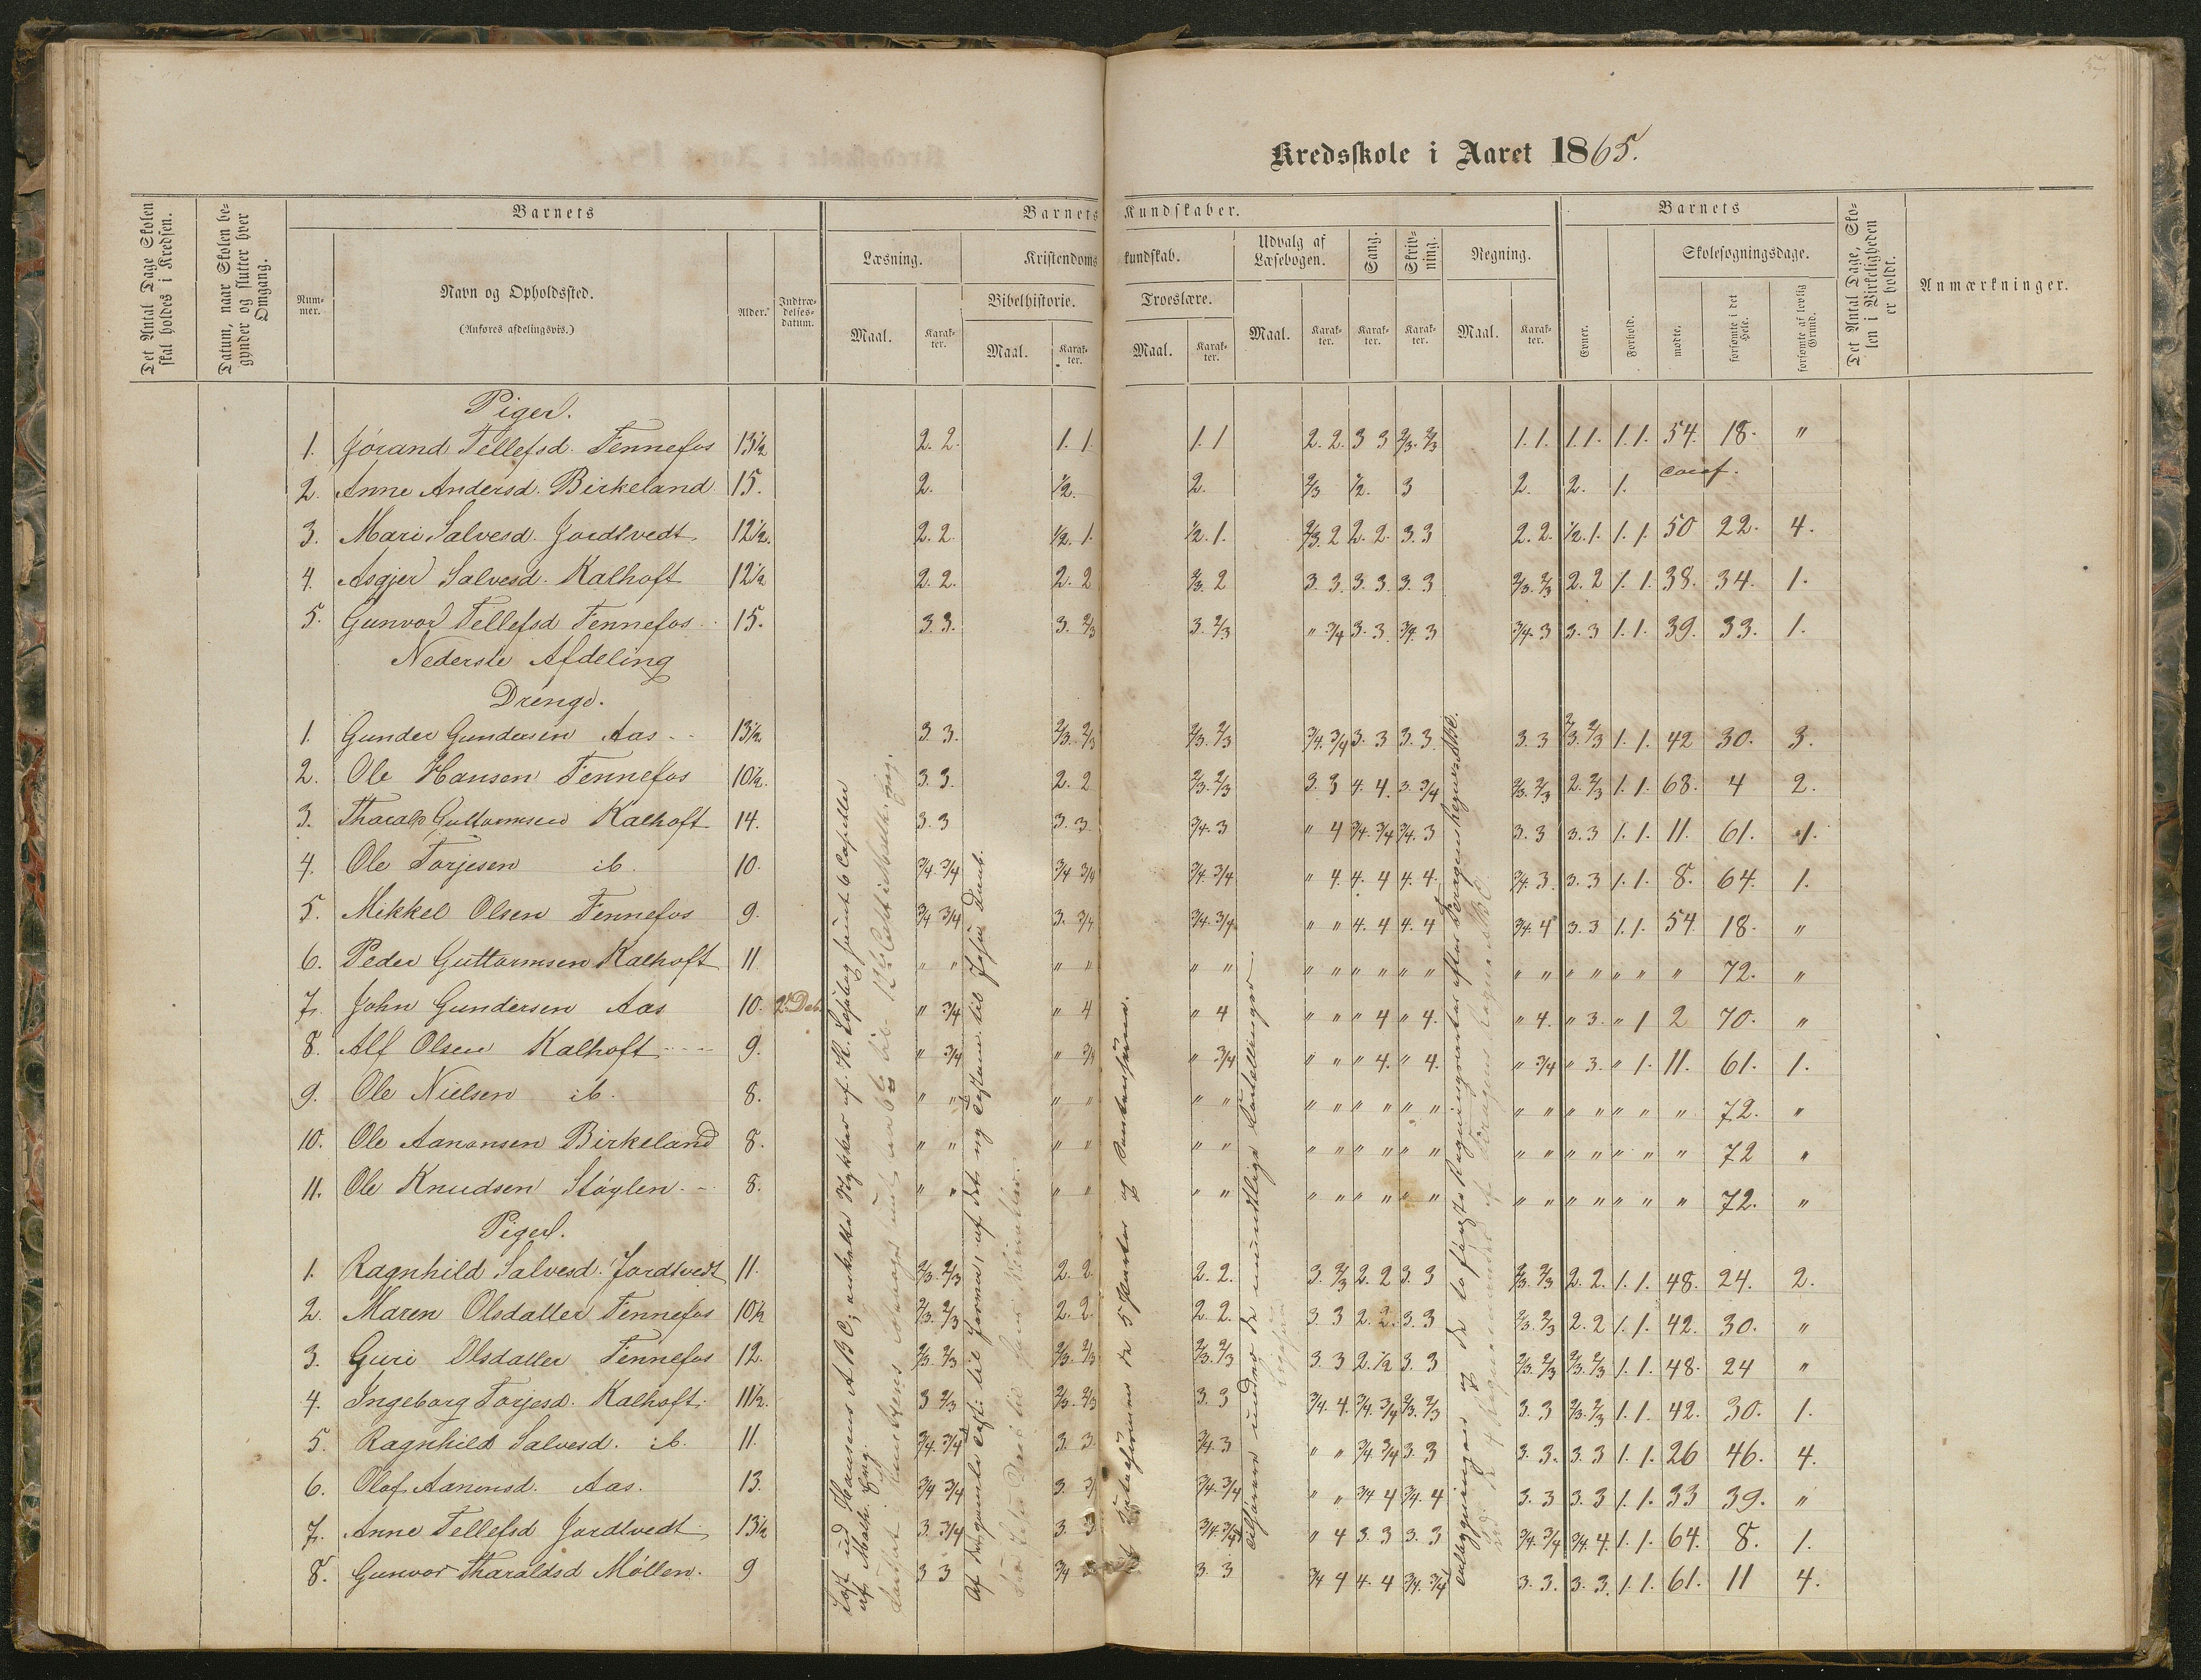 Kredsskole i Aaret 1865.
Det Antal Dage Skolen skal holdes i Kredsen.
Datum, naar Skolen begynder og slutter hver Omgang.
Barnets
Barnets Kundskaber.
Barnets
Det Antal Dage, Skolen i Virkeligheden er holdt.
Anmærkninger.
Nummer.
Navn og Opholdssted.
(Anføres afdelingsvis.)
Alder.
Indtrædelsesdatum.
Læsning.
Kristendomskundskab.
Udvalg af Læsebogen.
Sang.
Skrivning.
Regning.
Evner.
Forhold.
Skolesøgningsdage.
Bibelhistorie.
Troeslære.
mødte.
forsømte i det Hele.
forsømte af lovlig Grund.
Maal. Karakter. Maal. Karakter. Maal. Karakter. Maal. Karakter. Karakter. Karakter. Maal. Karakter.
Piger.
1. Jørand Tellefsd. Fennefos 13½ 2. 2. 1. 1. 1. 1 2. 2. 3 3 2/3. 2/3 1. 1. 1. 1. 1. 1. 54. 18. "
2. Anne Andersd. Birkeland 15. 2. ½. 2. 2/3 ½. 3 2. 2. 1. conf.
3. Mari Salvesd. Jordtvedt. 12½. 2. 2. ½. 1. ½. 1. 2/3. 2 2. 2. 3. 3 2. 2. ½. 1. 1. 1. 50 22. 4.
4. Asgjer Salvesd. Kalhoft 12½ 2. 2. 2. 2 2/3. 2 3. 3. 3. 3. 3. 3 2/3. 2/3 2. 2 1. 1. 38. 34. 1.
5. Gunvor Tellefsd Fennefos 15. 3. 3. 3. 2/3 3. 2/3 " 3/4 3. 3. 3/4. 3 3/4. 3 3. 3 1. 1. 39. 33. 1.
Nederste Afdeling
Drenge.
1. Gunder Gundersen Aas 13½ 3. 3. 2/3. 2/3 2/3. 2/3 3/4. 3/4 3. 3 3. 3. 3. 3 2/3. 2/3 1. 1. 42 30. 3.
2. Ole Hansen Fennefos 10½. 3. 3. 2. 2 2/3. 2/3 3. 3 4. 4. 3. 3/4 2/3. 2/3 2. 2/3 1. 1. 68. 4 2.
3. Tharald Guttormsen Kalhoft 14. 3. 3 3. 3 3/4. 3 " 4 3/4. 3/4 3/4. 3 3. 3 3. 3 1. 1. 11. 61. 1.
4. Ole Torjesen ib. 10. 3/4. 3/4 3/4 3/4 3/4. 3/4 " 4. 4. 4 4. 4. 3/4. 3. 3. 3 1. 1 8. 64. 1.
5. Mikkel Olsen Fennefos 9. 3/4 3/4 3. 3/4 3/4. 3/4 " " 4. 4 4. 4 3/4. 4 3. 3 1. 1. 54. 18. "
6. Peder Guttormsen Kalhoft 11 " " " " " " " " " " " " " " " " " " " 72. "
7. John Gundersen Aas 10. 2. Deb. " 3/4 " 4 " 4 " " " 4 " 4. " 4. " 3. " 1 2 70. "
8. Alf Olsen Kalhoft 9. " 3/4 " 3/4 " 3/4 " " " 4. " 4. " 3/4 " 3. " 1. 11. 61. 1.
9. Ole Nielsen ib. 8. " " " " " " " " " " " " " " " " " " " 72. "
10. Ole Aanonsen Birkeland 8. " " " " " " " " " " " " " " " " " " " 72 "
11. Ole Knudsen Støylen 8. " " " " " " " " " " " " " " " " " " " 72. "
Piger.
1. Ragnhild Salvesd. Jordtvedt 11. 2/3. 2/3 2. 2. 2. 2. 3. 2/3 2. 2 3. 3 2/3. 2/3 2. 2. 1. 1. 48. 24. 2.
2. Maren Olsdatter Fennefos 10½ 2/3. 2/3 2. 2. 2. 2. 3 3 2. 2. 3. 3 2/3. 2/3 2. 2 1. 1. 42. 30. "
3. Guri Olsdatter Fennefos 12. 2/3. 2/3 2/3. 2/3 2/3. 2/3 3. 3 2. ½ 3. 3 2/3. 2/3 2/3. 2/3 1. 1. 48. 24 "
4. Ingeborg Torjesd. Kalhoft. 11½. 3 2/3 2/3. 2/3 3. 3 3/4. 4. 3/4. 3/4 2/3. 2/3 3. 3 2/3. 2/3 1. 1. 42. 30. 1.
5. Ragnhild Salvesd. ib. 11. 3/4. 3/4 3. 3. 3/4. 3 " " 3/4. 3/4 3. 3 3. 3. 3. 3 1. 1. 26 46. 4.
6. Olaf. Aanonsd. Aas. 13. 3/4 3/4 3. 3/4. 3/4 " " 3/4 4 3/4. 4 3. 3 3. 3 1. 1. 33 39. "
7. Anne Tellefsd Jordtvedt 13½ 3. 3/4 3. 3 3/4. 3/4 " 4 3. 3 3. 3 3/4. 3/4 3/4. 4. 1. 1. 64. 8. 1.
8. Gunvor Tharaldsd Møllen. 9 3 3 3/4 3. 3 3/4 4 4. 4 3/4. 3/4 3. 3. 3. 3. 1. 1. 61. 11 4.
Hansens ABC, enkelte Stykker af